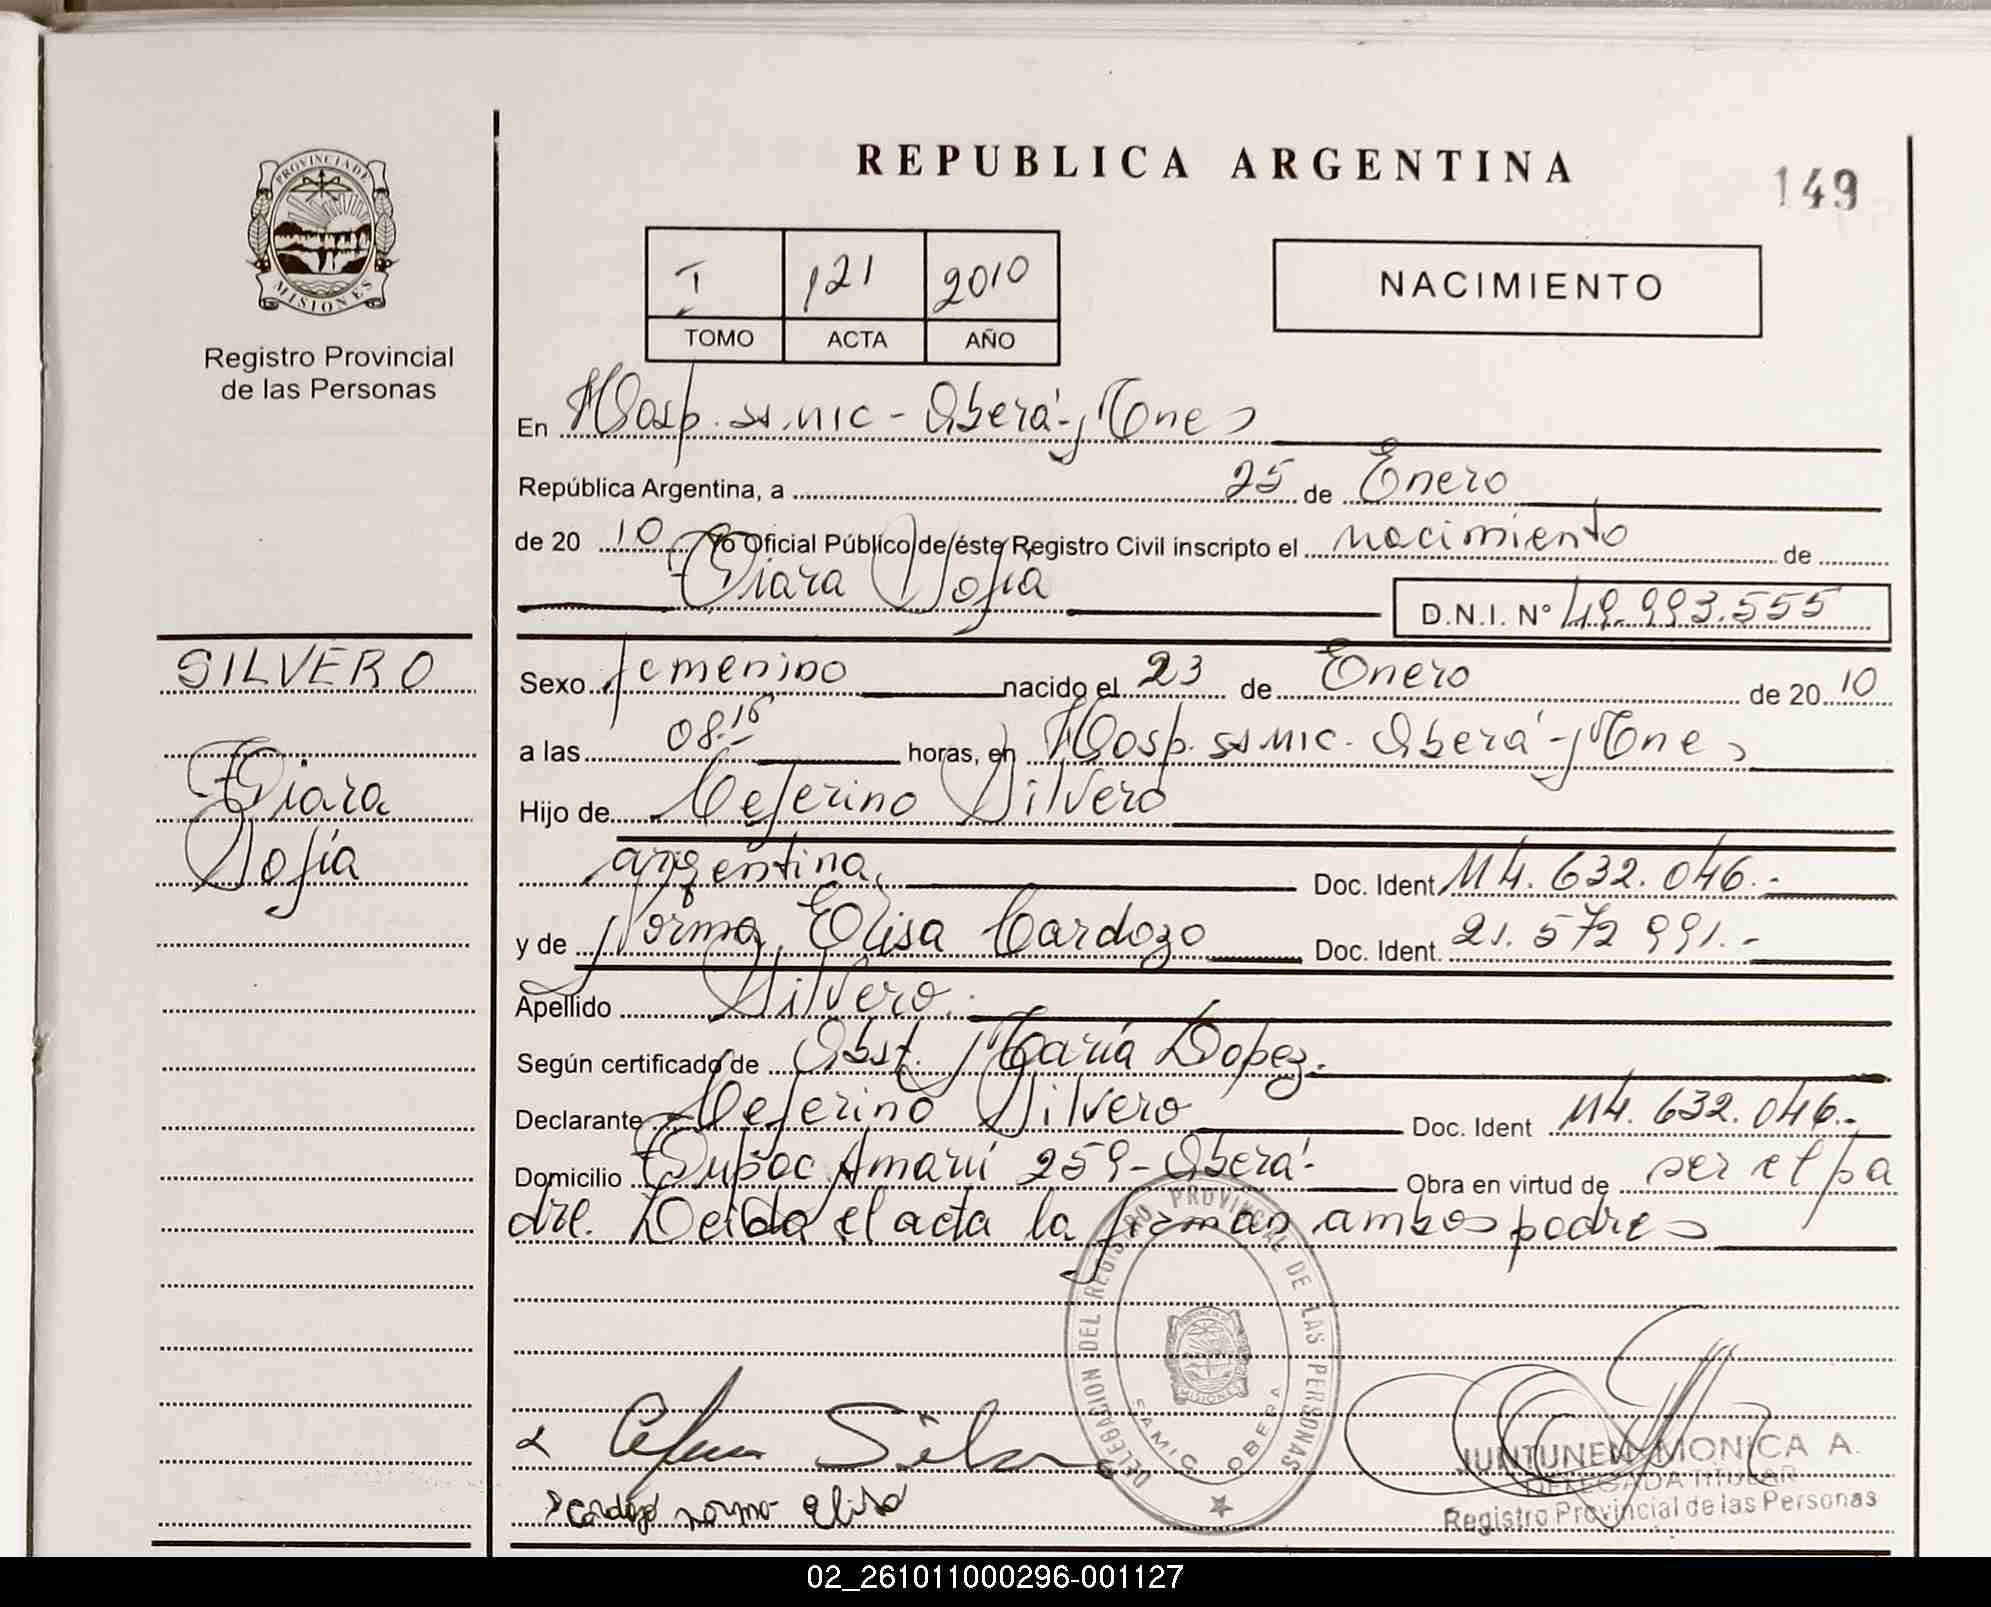 REPUBLICA ARGENTINA
149
PROVINCIA DE
MISIONES
Registro Provincial
de las Personas
I 121 2010
TOMO ACTA AÑO
NACIMIENTO
En Hosp. ss.mic - Oberá - Mnes
República Argentina, a 25 de Enero
de 20 10 Yo Oficial Público de éste Registro Civil inscripto el nacimiento de
Tiara Sofía
D.N.I. Nº 49.993.555
SILVERO
Tiara
Sofía
Sexo femenino nacido el 23 de Enero de 20 10
a las 08.15 horas, en Hosp. ss mic. Oberá - Mnes
Hijo de Ceferino Silvero
argentina, Doc. Ident M4.632.046.-
y de Norma Elisa Cardozo Doc. Ident. 21.572 991.-
Apellido Silvero.
Según certificado de Obst. María Lopez.
Declarante Ceferino Silvero Doc. Ident M4.632.046.-
Domicilio Tupac Amarú 259 - Oberá - Obra en virtud de ser el pa
dre. Leída el acta la firman ambos padres
DELEGACION DEL REGISTRO PROVINCIAL DE LAS PERSONAS
SAMIC OBERA
Cardozo norma elisa
JUNTUNEN MONICA A.
DELEGADA TITULAR
Registro Provincial de las Personas
02_261011000296-001127